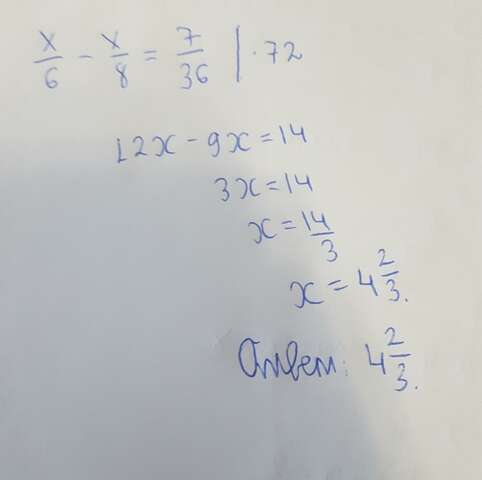 x/6 - x/8 = 7/36 | · 72
12x - 9x = 14
3x = 14
x = 14/3
x = 4 2/3.
Ответ: 4 2/3.